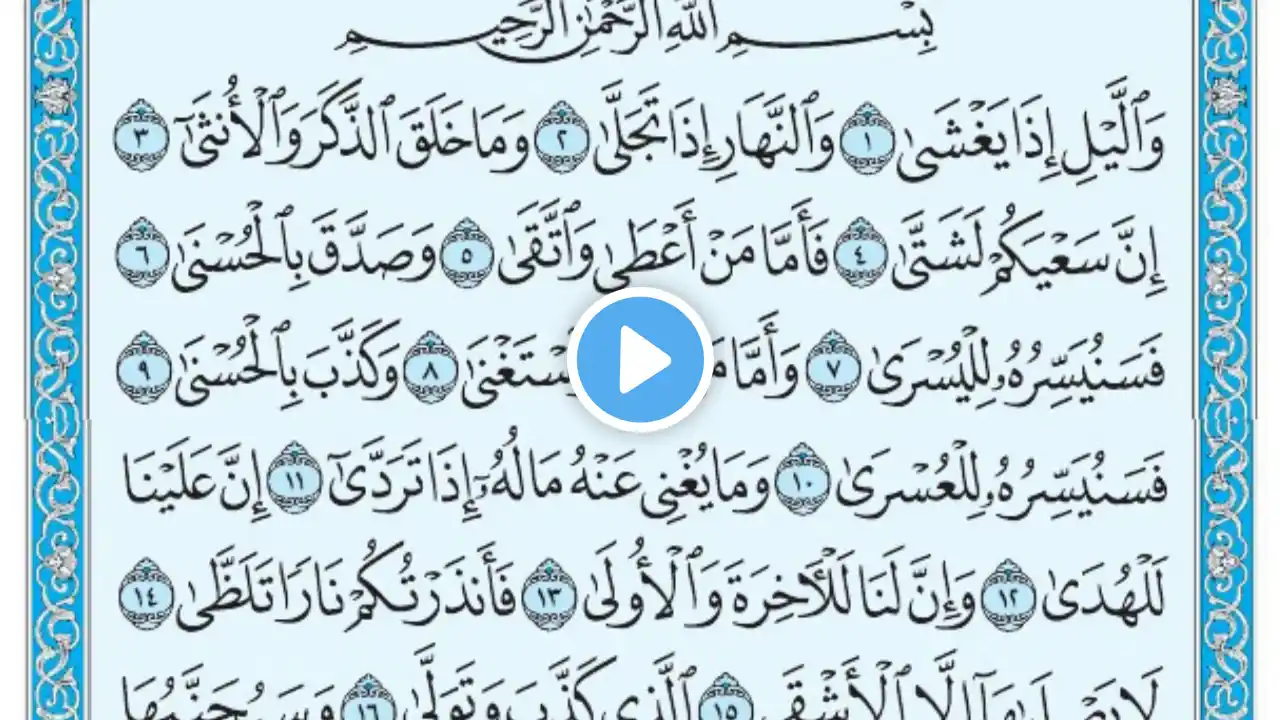 بِسْمِ ٱللَّهِ ٱلرَّحْمَٰنِ ٱلرَّحِيمِ
وَٱلَّيْلِ إِذَا يَغْشَىٰ ١ وَٱلنَّهَارِ إِذَا تَجَلَّىٰ ٢ وَمَا خَلَقَ ٱلذَّكَرَ وَٱلْأُنثَىٰٓ ٣
إِنَّ سَعْيَكُمْ لَشَتَّىٰ ٤ فَأَمَّا مَنْ أَعْطَىٰ وَٱتَّقَىٰ ٥ وَصَدَّقَ بِٱلْحُسْنَىٰ ٦
فَسَنُيَسِّرُهُۥ لِلْيُسْرَىٰ ٧ وَأَمَّا ٨ وَكَذَّبَ بِٱلْحُسْنَىٰ ٩
فَسَنُيَسِّرُهُۥ لِلْعُسْرَىٰ ١٠ وَمَا يُغْنِى عَنْهُ مَالُهُۥٓ إِذَا تَرَدَّىٰٓ ١١ إِنَّ عَلَيْنَا
لَلْهُدَىٰ ١٢ وَإِنَّ لَنَا لَلْـَٔاخِرَةَ وَٱلْأُولَىٰ ١٣ فَأَنذَرْتُكُمْ نَارًا تَلَظَّىٰ ١٤
لَا يَصْلَىٰهَآ إِلَّا ٱلْأَشْقَى ١٥ ٱلَّذِى كَذَّبَ وَتَوَلَّىٰ ١٦ وَسَيُجَنَّبُهَا